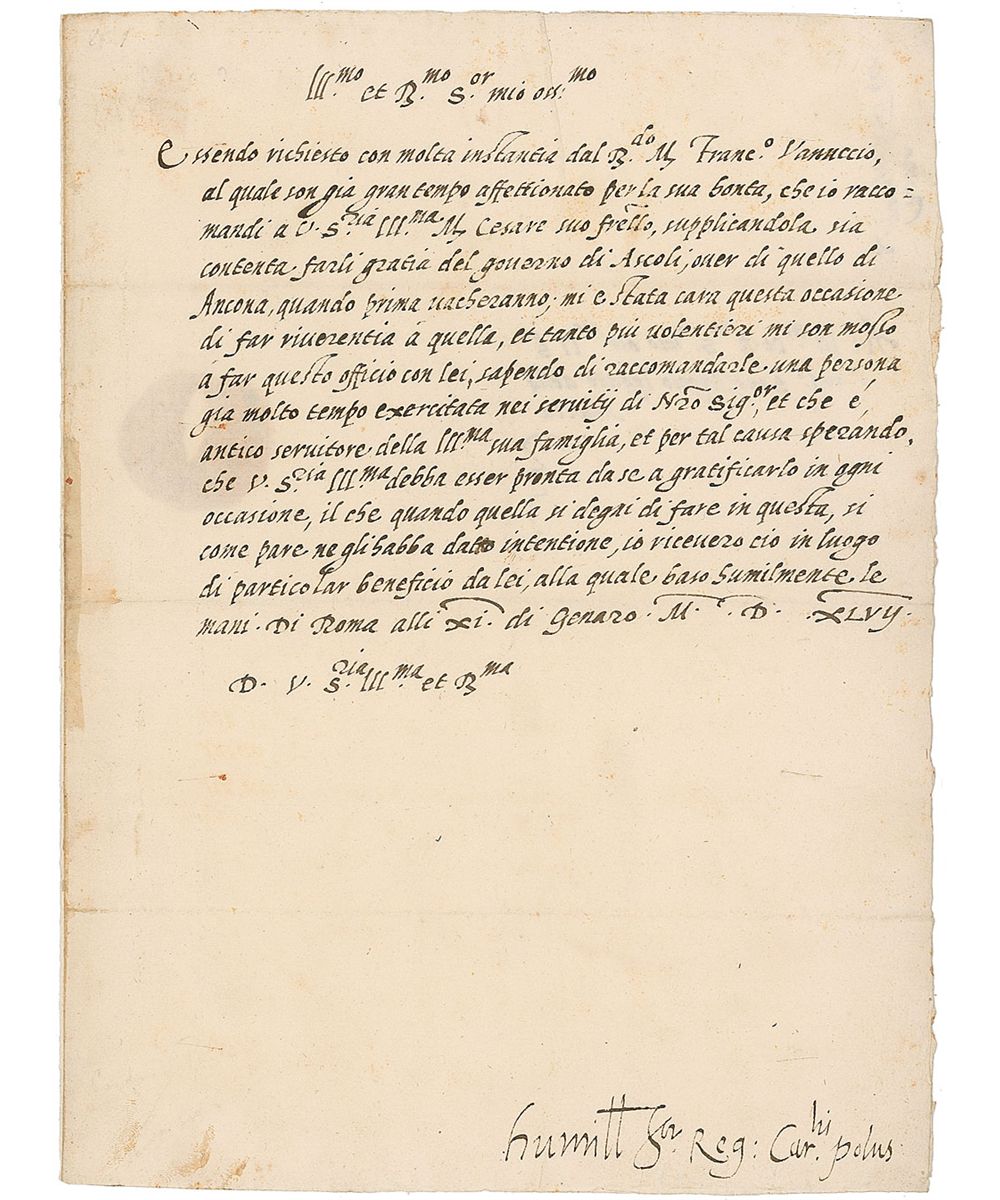 Ill.mo et R.mo S.or mio oss.mo
Essendo richiesto con molta instantia dal R.do M. Franc.o Vanuccio,
al quale son già gran tempo affettionato per la sua bontà, che io racco=
mandi à V. S.ria Ill.ma M. Cesare suo frello, supplicandola sia
contenta farli gratia del governo di Ascoli, over di quello di
Ancona, quando prima vacheranno; mi e stata cara questa occasione
di far riverentia à quella, et tanto più volentieri mi son mosso
à far questo officio con lei, sapendo di raccomandarle una persona
già molto tempo exercitata nei servitij di Nrõ Sig.or, et che é,
antico servitore della Ill.ma sua famiglia, et per tal causa sperando,
che V. S.ria Ill.ma debba esser pronta da se a gratificarlo in ogni
occasione, il che quando quella si degni di fare in questa, si
come pare ne gli habba dato intentione, io ricevero ciò in luogo
di particolar beneficio da lei, alla quale baso humilmente le
mani. Di Roma alli xi. di Genaro. M. D. XLVIJ.
D. V. S.ria Ill.ma et R.ma
humill S.tor Reg: Car.lis polus